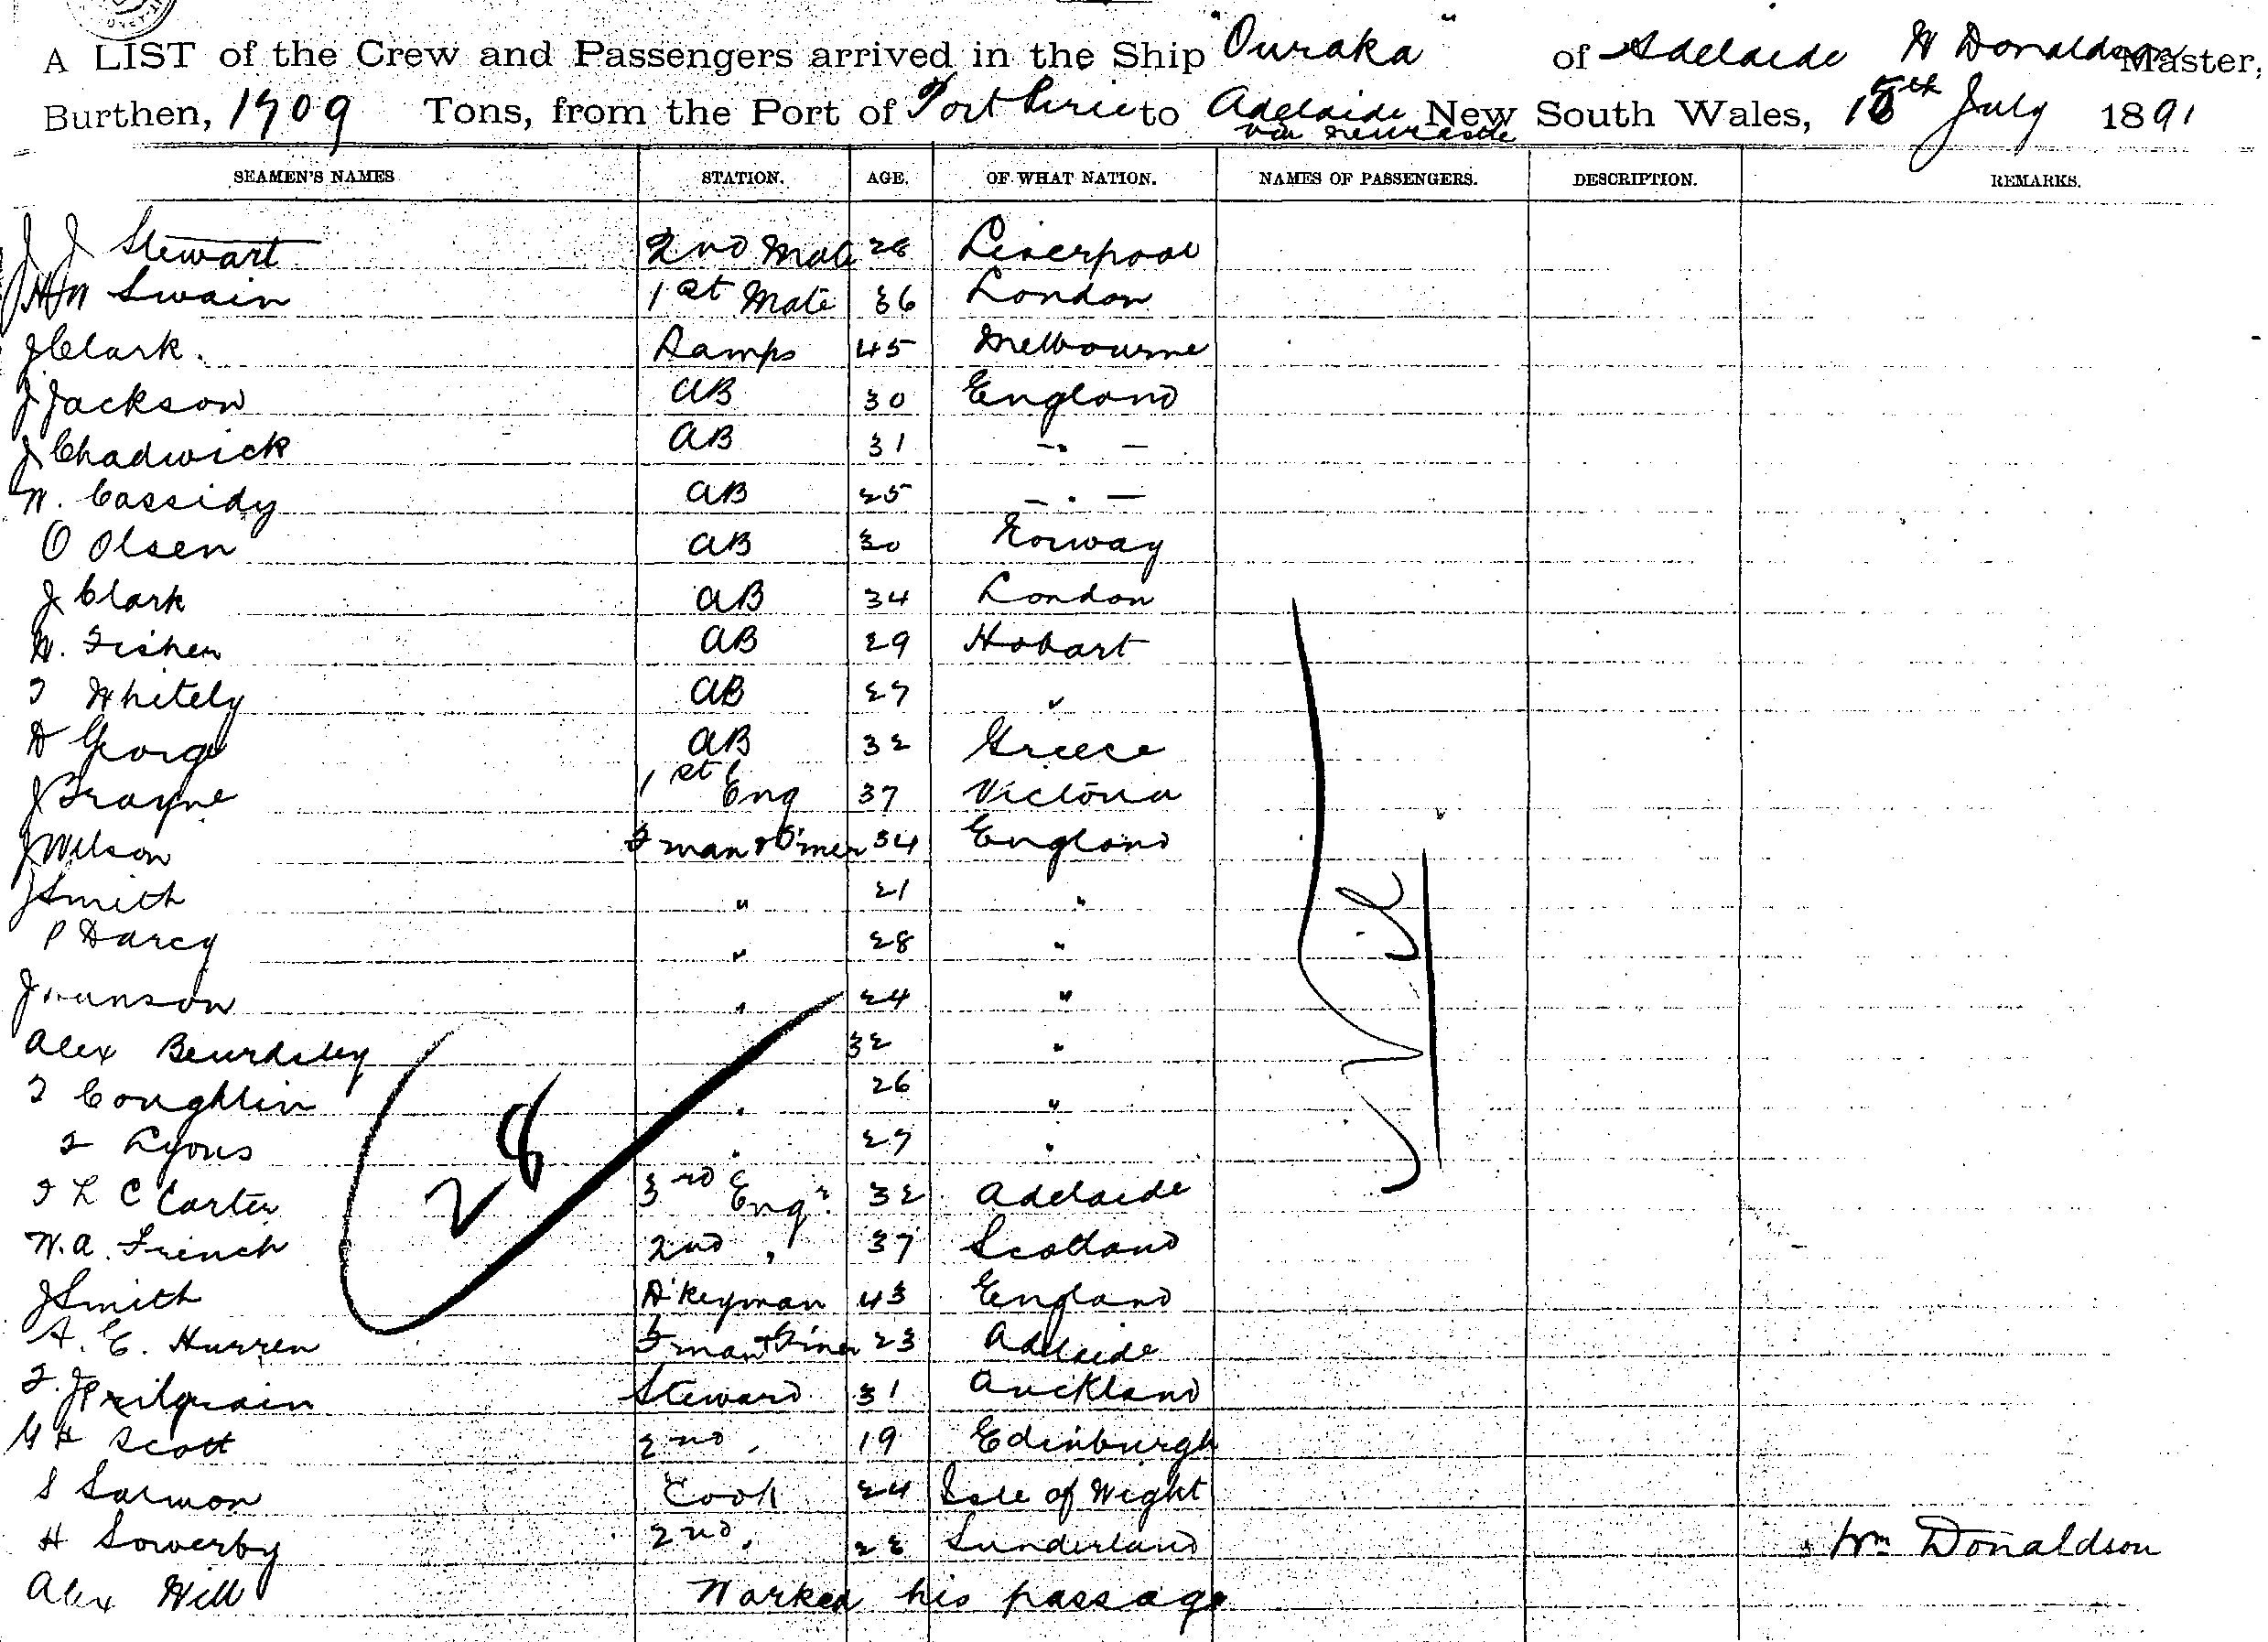 A LIST of the Crew and Passengers arrived in the Ship "Ouraka" of Adelaide W Donaldson Master,
Burthen, 1909 Tons, from the Port of Port Pirie to Adelaide New South Wales, 18th July 1891
via Newcastle
SEAMEN'S NAMES STATION. AGE. OF WHAT NATION. NAMES OF PASSENGERS. DESCRIPTION. REMARKS.
J J Stewart 2nd Mate 28 Liverpool
Swain 1st Mate 36 London
J Clark. Lamps 45 Melbourne
J Jackson AB 30 England
J Chadwick AB 31 - . -
W. Cassidy AB 25 - . -
O Olsen AB 30 Norway
J Clark AB 34 London
W. Fisher AB 29 Hobart
T Whitely AB 27 "
A George AB 32 Greece
J Brayne 1st Eng 37 Victoria
J Wilson F'man & T'mer 34 England
J Smith " 21 "
P Darcy " 28 "
J " 24 "
Alex Beurdsley 32 "
T Coughlin " 26 "
T Lyons " 27 "
T L C Carter 3rd Engr. 32 Adelaide
W. A. French 2nd " 37 Scotland
J Smith D'keyman 43 England
A. E. Hurren F'man & T'mer 23 Adelaide
Steward 31 Auckland
G H Scott 2nd " 19 Edinburgh
S Salmon Cook 24 Isle of Wight
H Sowerby 2nd " 22 Sunderland Wm Donaldson
Alex Hill Worked his passage
28